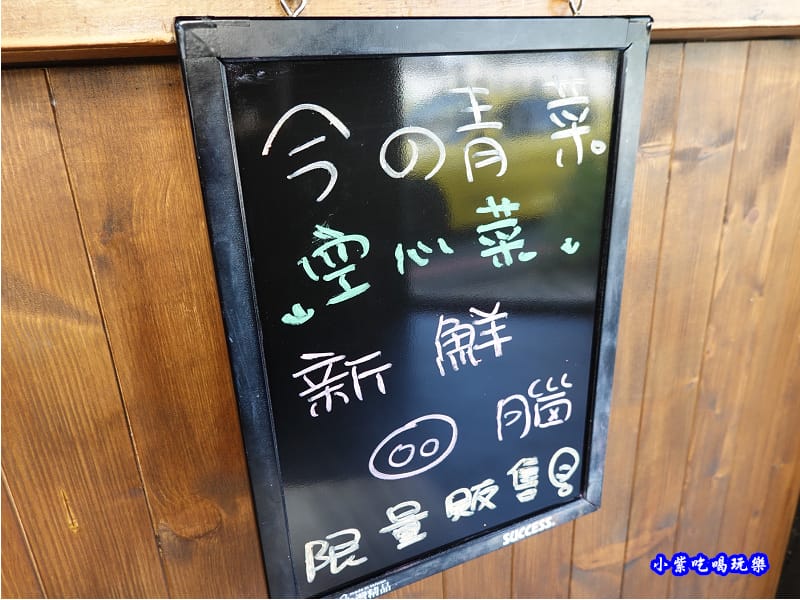 今の青菜
空心菜
新鮮
腦
限量販售!
SUCCESS.
小紫吃喝玩樂